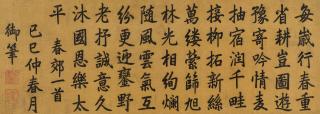 每歲行春重
省耕豈圖遊
豫寄吟情麦
抽宿潤千畦
接柳拓新絲
萬縷縈篩旭
林光相絢爛
隨風雲氣互
紛更迎鑾野
老抒誠意久
沐國恩樂太
平 春郊一首
己巳仲春月
御筆